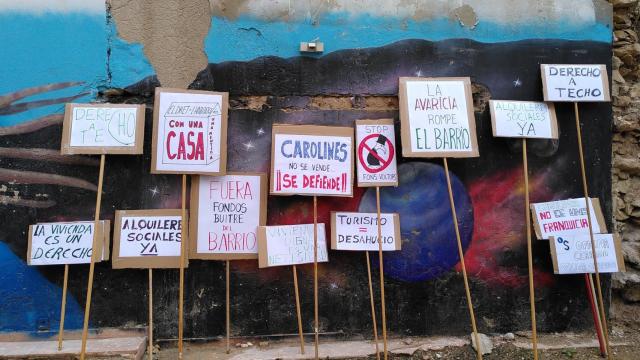 DERECHO
A
TECHO
CON UNA
CASA
LA VIVIENDA
ES UN
DERECHO
ALQUILERES
SOCIALES
YA
FUERA
FONDOS
BUITRE
DEL
BARRIO
CAROLINES
NO SE VENDE...
¡¡SE DEFIENDE!!
STOP
FONS VOLTORS
TURISMO
=
DESAHUCIO
LA
AVARICIA
ROMPE
EL BARRIO
ALQUILERES
SOCIALES
YA
DERECHO
A
TECHO
FRANQUICIA